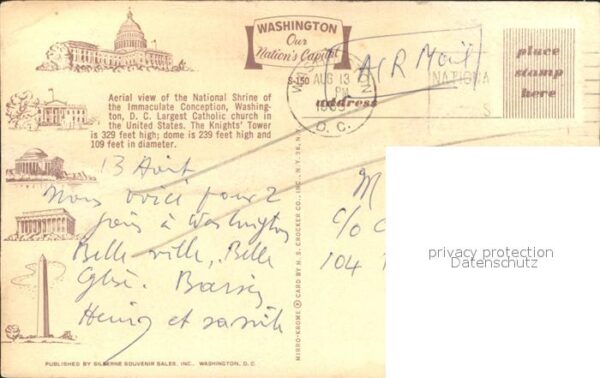 WASHINGTON
Our
Nation's Capital
S-150
AIR Mail
AUG 13
PM
D. C.
NATIONA
address
place
stamp
here
Aerial view of the National Shrine of
the Immaculate Conception, Washing-
ton, D. C. Largest Catholic church in
the United States. The Knights' Tower
is 329 feet high; dome is 239 feet high and
109 feet in diameter.
13 Août
Nous voici pour 2
jours à Washington
Belle ville, Belle
Henry et
M
c/o C
104
privacy protection
Datenschutz
MIRRO-KROME ® CARD BY H. S. CROCKER CO., INC., N.Y. 36, N.Y.
PUBLISHED BY SILBERNE SOUVENIR SALES, INC., WASHINGTON, D. C.